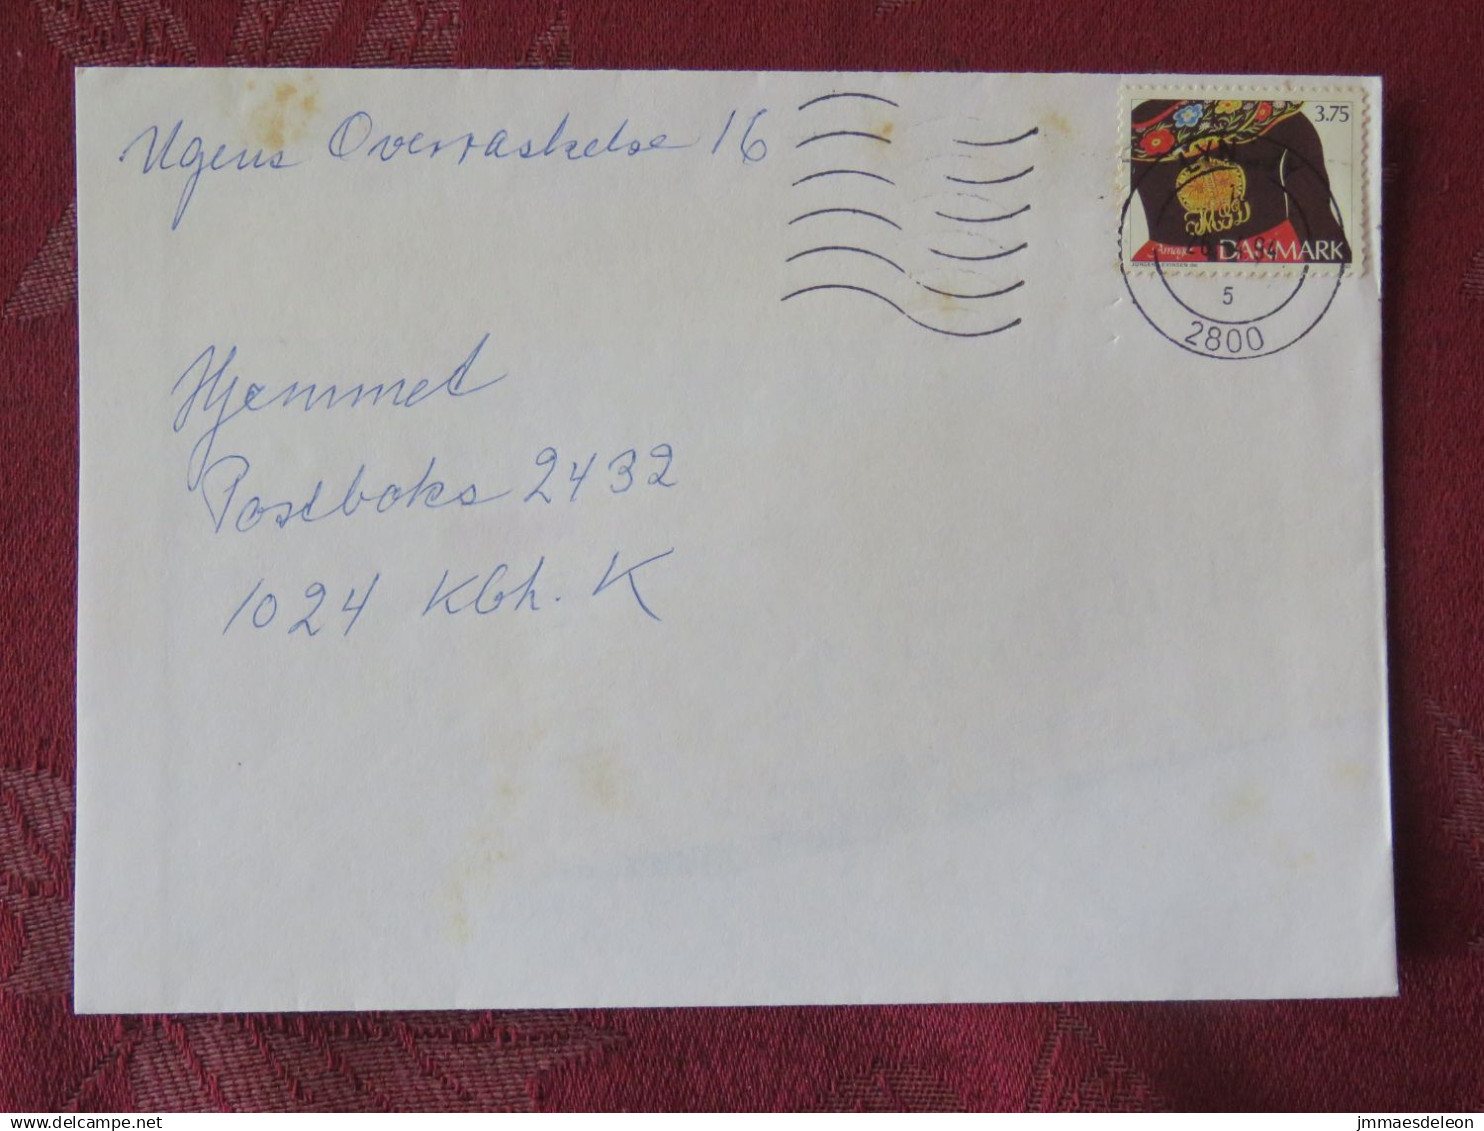 Ugens Overraskelse 16
3.75
Amager DANMARK
5
2800
Hjemmet
Postboks 2432
1024 Kbh. K
jmmaesdeleon